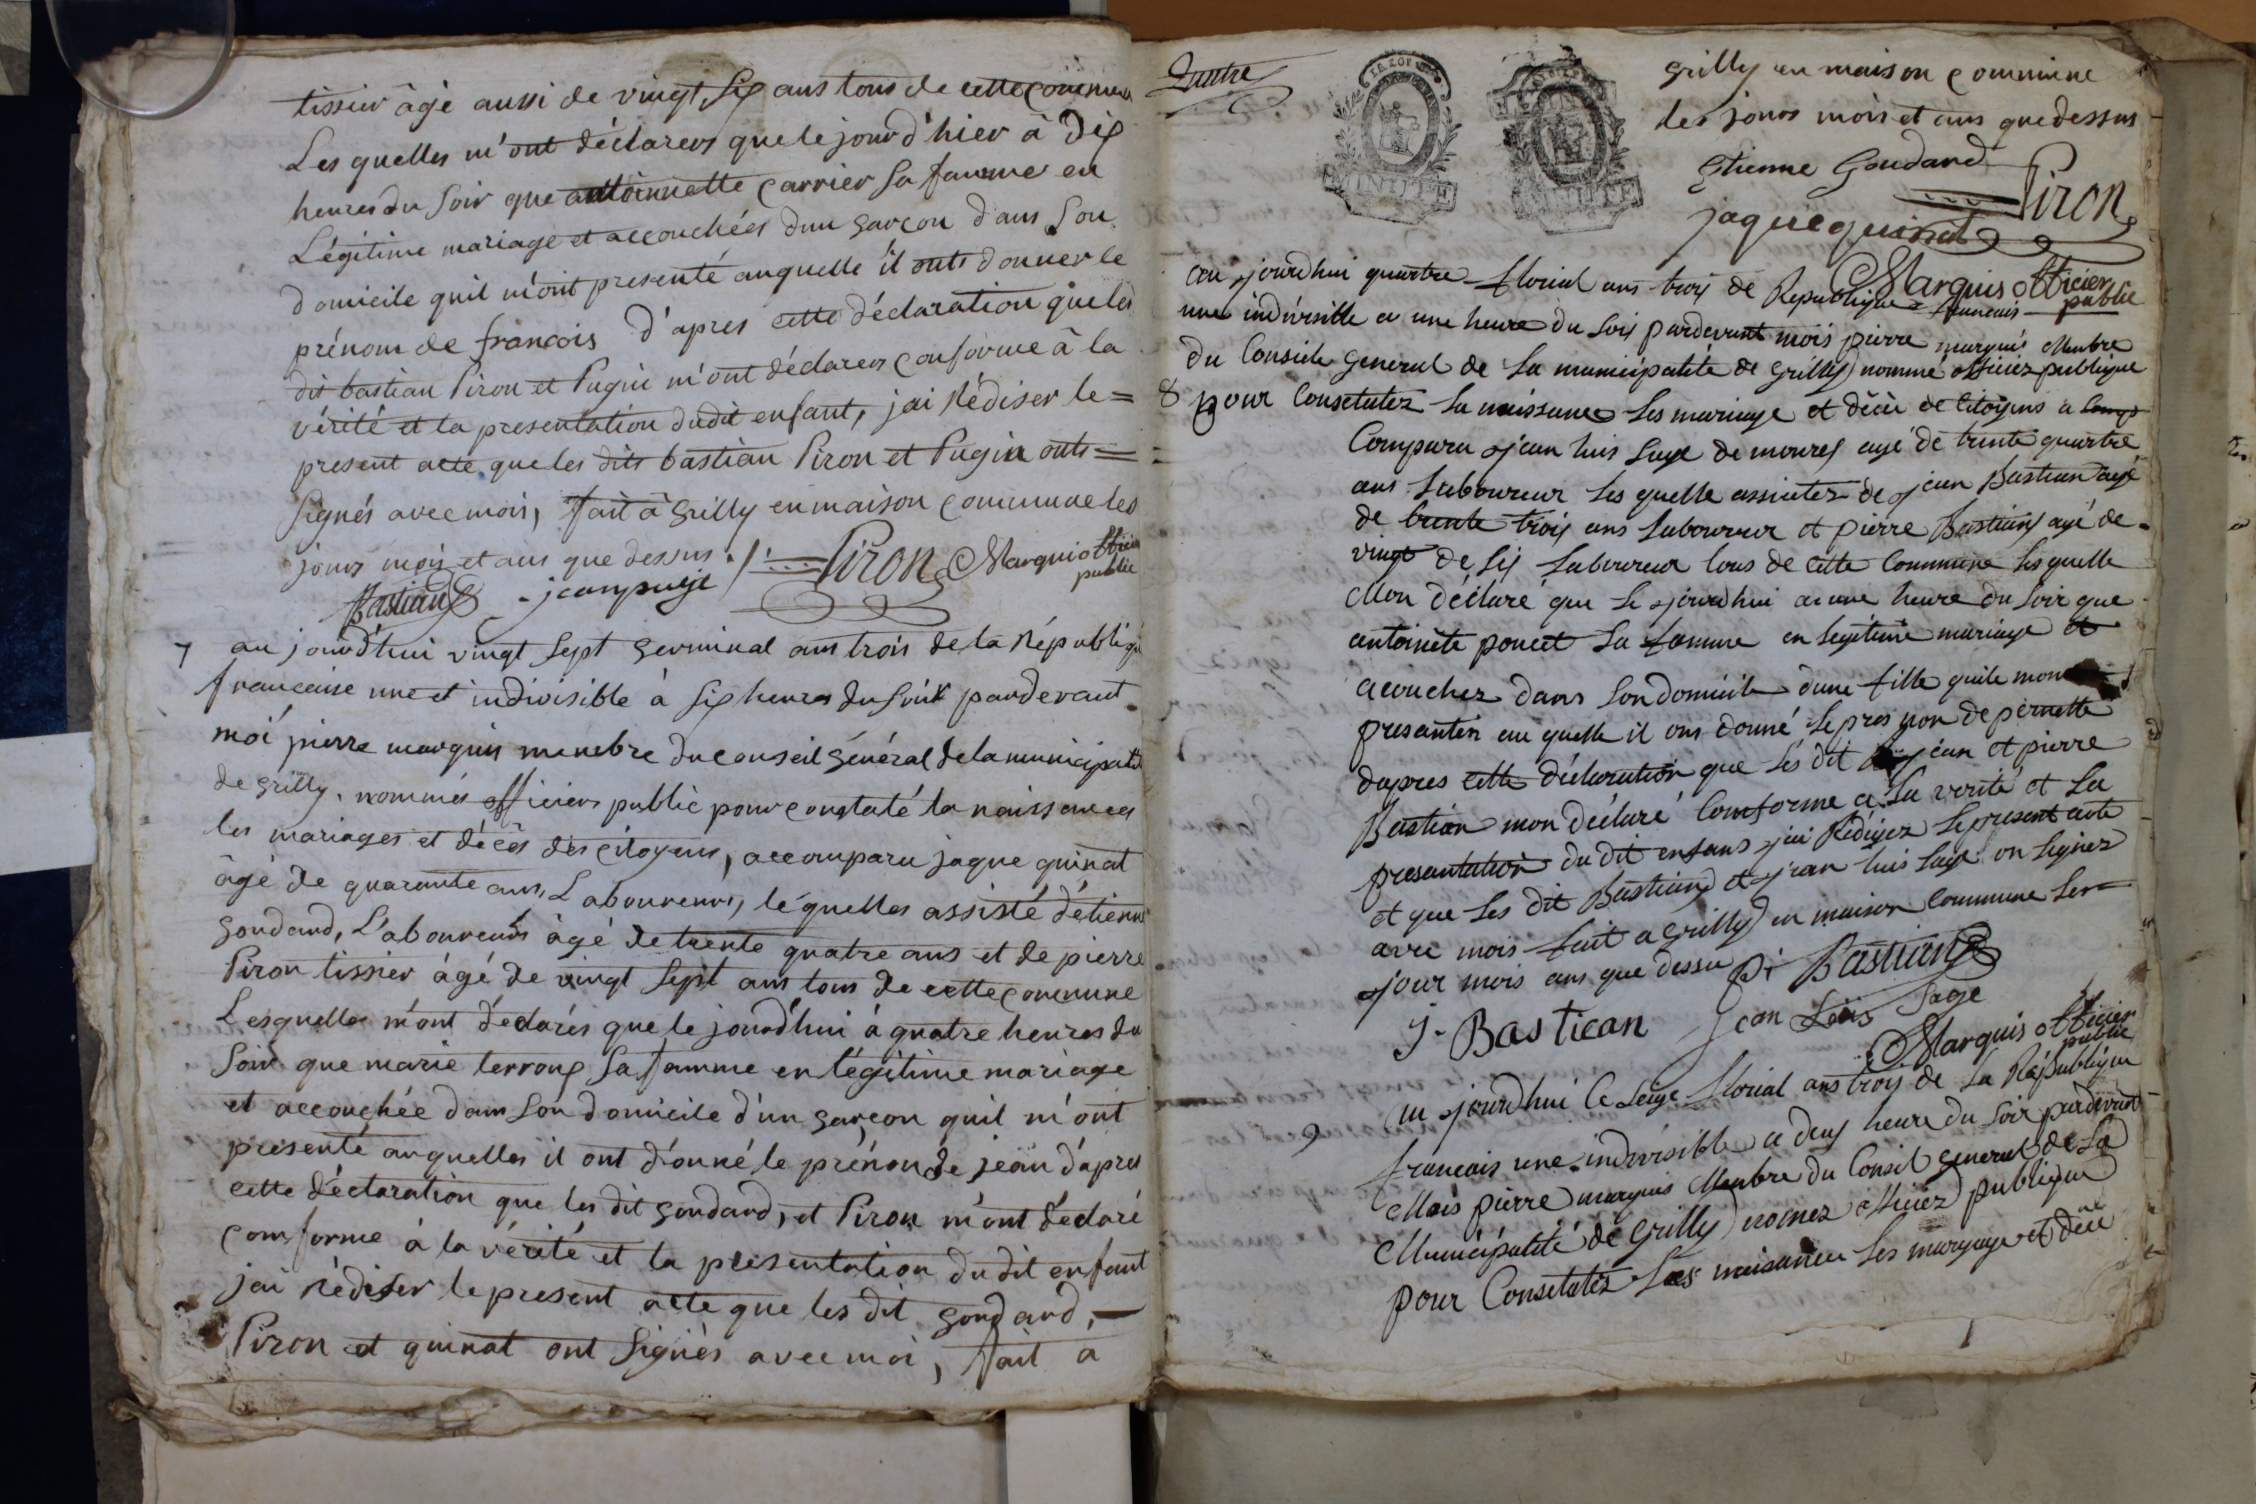 tissier âgé aussi de vingt six ans tous de cette commune
Les quelles m'ont déclarers que le jourd'hier à dix
heures du soir que antoinette Carrier sa famme en
Légitime mariage et accouchées d'un garçon dans son
domicile quil m'ont presenté auquelle il onts donner le
prénom de francois d'apres cette déclaration que les
dit bastian Piron et Pugin m'ont déclarers conforme à la
vérité et la presentation dudit enfant, jai Rédiser le =
present acte que les dits bastian Piron et Pugin onts =
signés avec mois, fait à Grilly en maison commune les
jours mois et ans que dessus ./. Piron Marquis officier
public
Bastian jean pugi
7 au jourd'hui vingt sept Germinal ans trois de la Républiq
francaise une et indivisible à six heures du soir pardevant
moi pierre marquis menbre du conseil général de la municipalité
de Grilly, nommés officiers public pour constaté la naissances
les mariages et décès des citoyens, accomparu jaque quinat
âgé de quarante ans, Laboureurs, léquelles assisté détienne
Goudard, Laboureurs âgé de trente quatre ans et de pierre
Piron tissier âgé de vingt sept ans tous de cette commune
Lesquelles m'ont déclarés que le jourd'hui à quatre heures du
soir que marie terroux sa famme en légitime mariage
et accouchée dans son domicile d'un garçon quil m'ont
présenté auquelles il ont d'onné le prénom de jean d'apres
cette d'éclaration que les dit Goudard, et Piron m'ont déclaré
conforme à la vérité et la présentation du dit enfant
jai rédiser le present acte que les dit Goudard,
Piron et quinat ont signés avec moi, fait a
Grilly en maison commune
les jours mois et ans que dessus
Etienne Goudard Piron
jaque quinat
Marquis officier
public
au jourdhui quattre florial ans trois de Republique francais
une indivisille a une heure du soir pardevant mois pierre marquis Menbre
du Consiele general de la municipalite de Grilly nomme officiez publique
8 pour Consetutez la naissance les mariage et décè de Citoyens a
Comparu jean luis sage de moures agé de trente quattre
ans laboureur les quelle assistez de jean Bastian agé
de trente trois ans laboureur et pierre Bastian agé de
vingt de six laboureur tous de cette Commune lesquelle
Mon déclaré que le jourdhui a une heure du soir que
antoinete poncet sa famme en legitime mariage et
acouchez dans son domicile dune fille quile mon
presantèn au quelle il ons donné le pres non de pernette
dapres cette déclaration que lés dit jean et pierre
Bastian mon déclaré Comforme a la verité et la
presantation du dit enfans jai Rédigez le present acte
et que les dit Bastian et jean luis sage on signez
avec mois fait a Grilly en maison Commune les
jour mois ans que dessu pi Bastian
J. Bastican Jean Loüis Sage
Marquis officier
public
9 au jourdhui le seize florial ans trois de la Républiqu
francais une indivisible a deus heure du soir pardevant
Mois pierre marquis Menbre du Consil general de la
Municipalité de Grilly nomez officiez publique
pour Consetatéz les naisance les maryage et décè